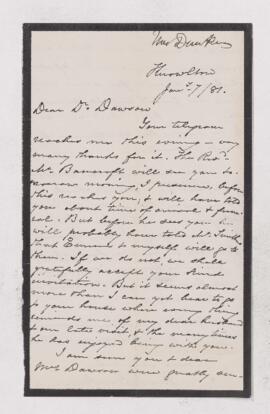 Mrs Dunkin
Knowlton
Jany. 7/81.
Dear Dr. Dawson
Your telegram
reaches me this evening – very
many thanks for it. The Revd.
Mr. Bancroft will see you to-
morrow morning, I presume, before
this reaches you, & will have told
you about time of arrival & funer-
al. But before he does you it
will probably have told
that Emma & myself will go to
them. If we do not, we shall
gratefully accept your kind
invitation. But it seems almost
more than I can yet bear to go
to your house where every thing
reminds me of my dear husband
& our late visit, & the many times
he has enjoyed being with you.
I am sure you & dear
Mrs Dawson were greatly